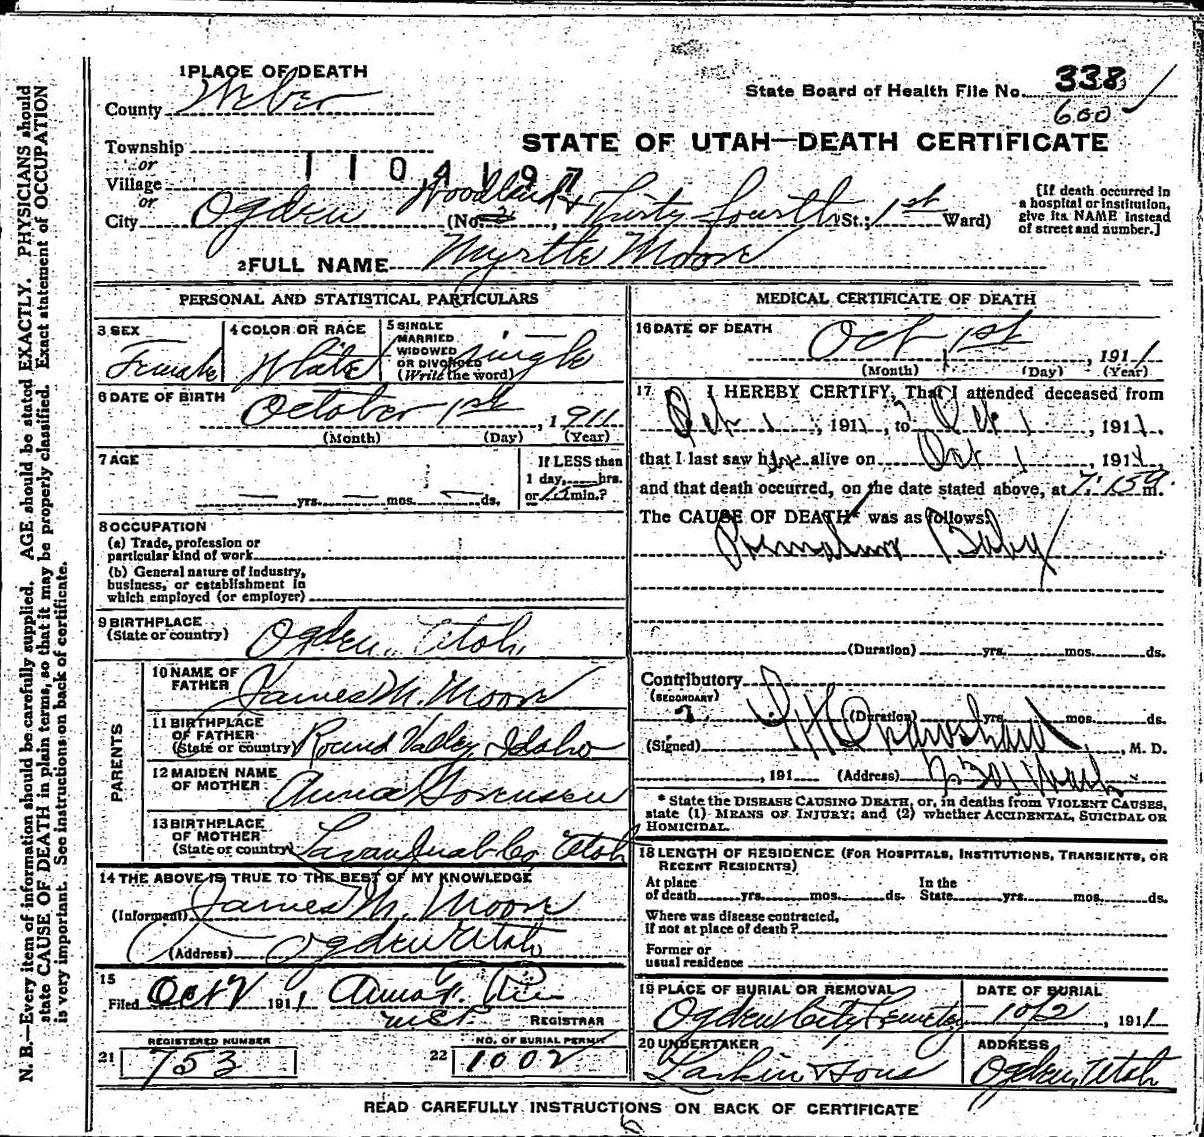 N. B.—Every item of information should be carefully supplied. AGE should be stated EXACTLY. PHYSICIANS should
state CAUSE OF DEATH in plain terms, so that it may be properly classified. Exact statement of OCCUPATION
is very important. See instructions on back of certificate.
1 PLACE OF DEATH
County Weber
State Board of Health File No. 338
600
STATE OF UTAH—DEATH CERTIFICATE
Township
or
Village
1104197
or
City Ogden (No. Woodland & Thirty fourth St.; 1st Ward)
[If death occurred in
a hospital or institution,
give its NAME instead
of street and number.]
2 FULL NAME Myrtle Moore
PERSONAL AND STATISTICAL PARTICULARS
3 SEX Female
4 COLOR OR RACE White
5 SINGLE
MARRIED
WIDOWED
OR DIVORCED
(Write the word) Single
6 DATE OF BIRTH October 1st, 1911
(Month) (Day) (Year)
7 AGE
— yrs. — mos. — ds.
If LESS than
1 day, hrs.
or min.?
8 OCCUPATION
(a) Trade, profession or
particular kind of work
(b) General nature of industry,
business, or establishment in
which employed (or employer)
9 BIRTHPLACE
(State or country) Ogden Utah
PARENTS
10 NAME OF
FATHER James M. Moore
11 BIRTHPLACE
OF FATHER
(State or country) Round Valley, Idaho
12 MAIDEN NAME
OF MOTHER Anna Sorensen
13 BIRTHPLACE
OF MOTHER
(State or country) Levan Juab Co Utah
14 THE ABOVE IS TRUE TO THE BEST OF MY KNOWLEDGE
(Informant) James M. Moore
(Address) Ogden Utah
15
Filed Oct 2 1911 Anna
REGISTRAR
REGISTERED NUMBER
21 753
NO. OF BURIAL PERMIT
22 1002
MEDICAL CERTIFICATE OF DEATH
16 DATE OF DEATH Oct 1st, 1911
(Month) (Day) (Year)
17 I HEREBY CERTIFY, That I attended deceased from
Oct 1, 1911, to Oct 1, 1911,
that I last saw her alive on Oct 1, 1911,
and that death occurred, on the date stated above, at 7:15 m.
The CAUSE OF DEATH* was as follows:
Premature Baby
(Duration) yrs. mos. ds.
Contributory
(SECONDARY)
(Duration) yrs. mos. ds.
(Signed) , M. D.
, 191 (Address)
* State the DISEASE CAUSING DEATH, or, in deaths from VIOLENT CAUSES,
state (1) MEANS OF INJURY; and (2) whether ACCIDENTAL, SUICIDAL OR
HOMICIDAL.
18 LENGTH OF RESIDENCE (FOR HOSPITALS, INSTITUTIONS, TRANSIENTS, OR
RECENT RESIDENTS)
At place
of death yrs. mos. ds.
In the
State yrs. mos. ds.
Where was disease contracted,
if not at place of death?
Former or
usual residence
19 PLACE OF BURIAL OR REMOVAL
Ogden City Cemetery
DATE OF BURIAL
10/2, 1911
20 UNDERTAKER
Larkin & Sons
ADDRESS
Ogden, Utah
READ CAREFULLY INSTRUCTIONS ON BACK OF CERTIFICATE
6